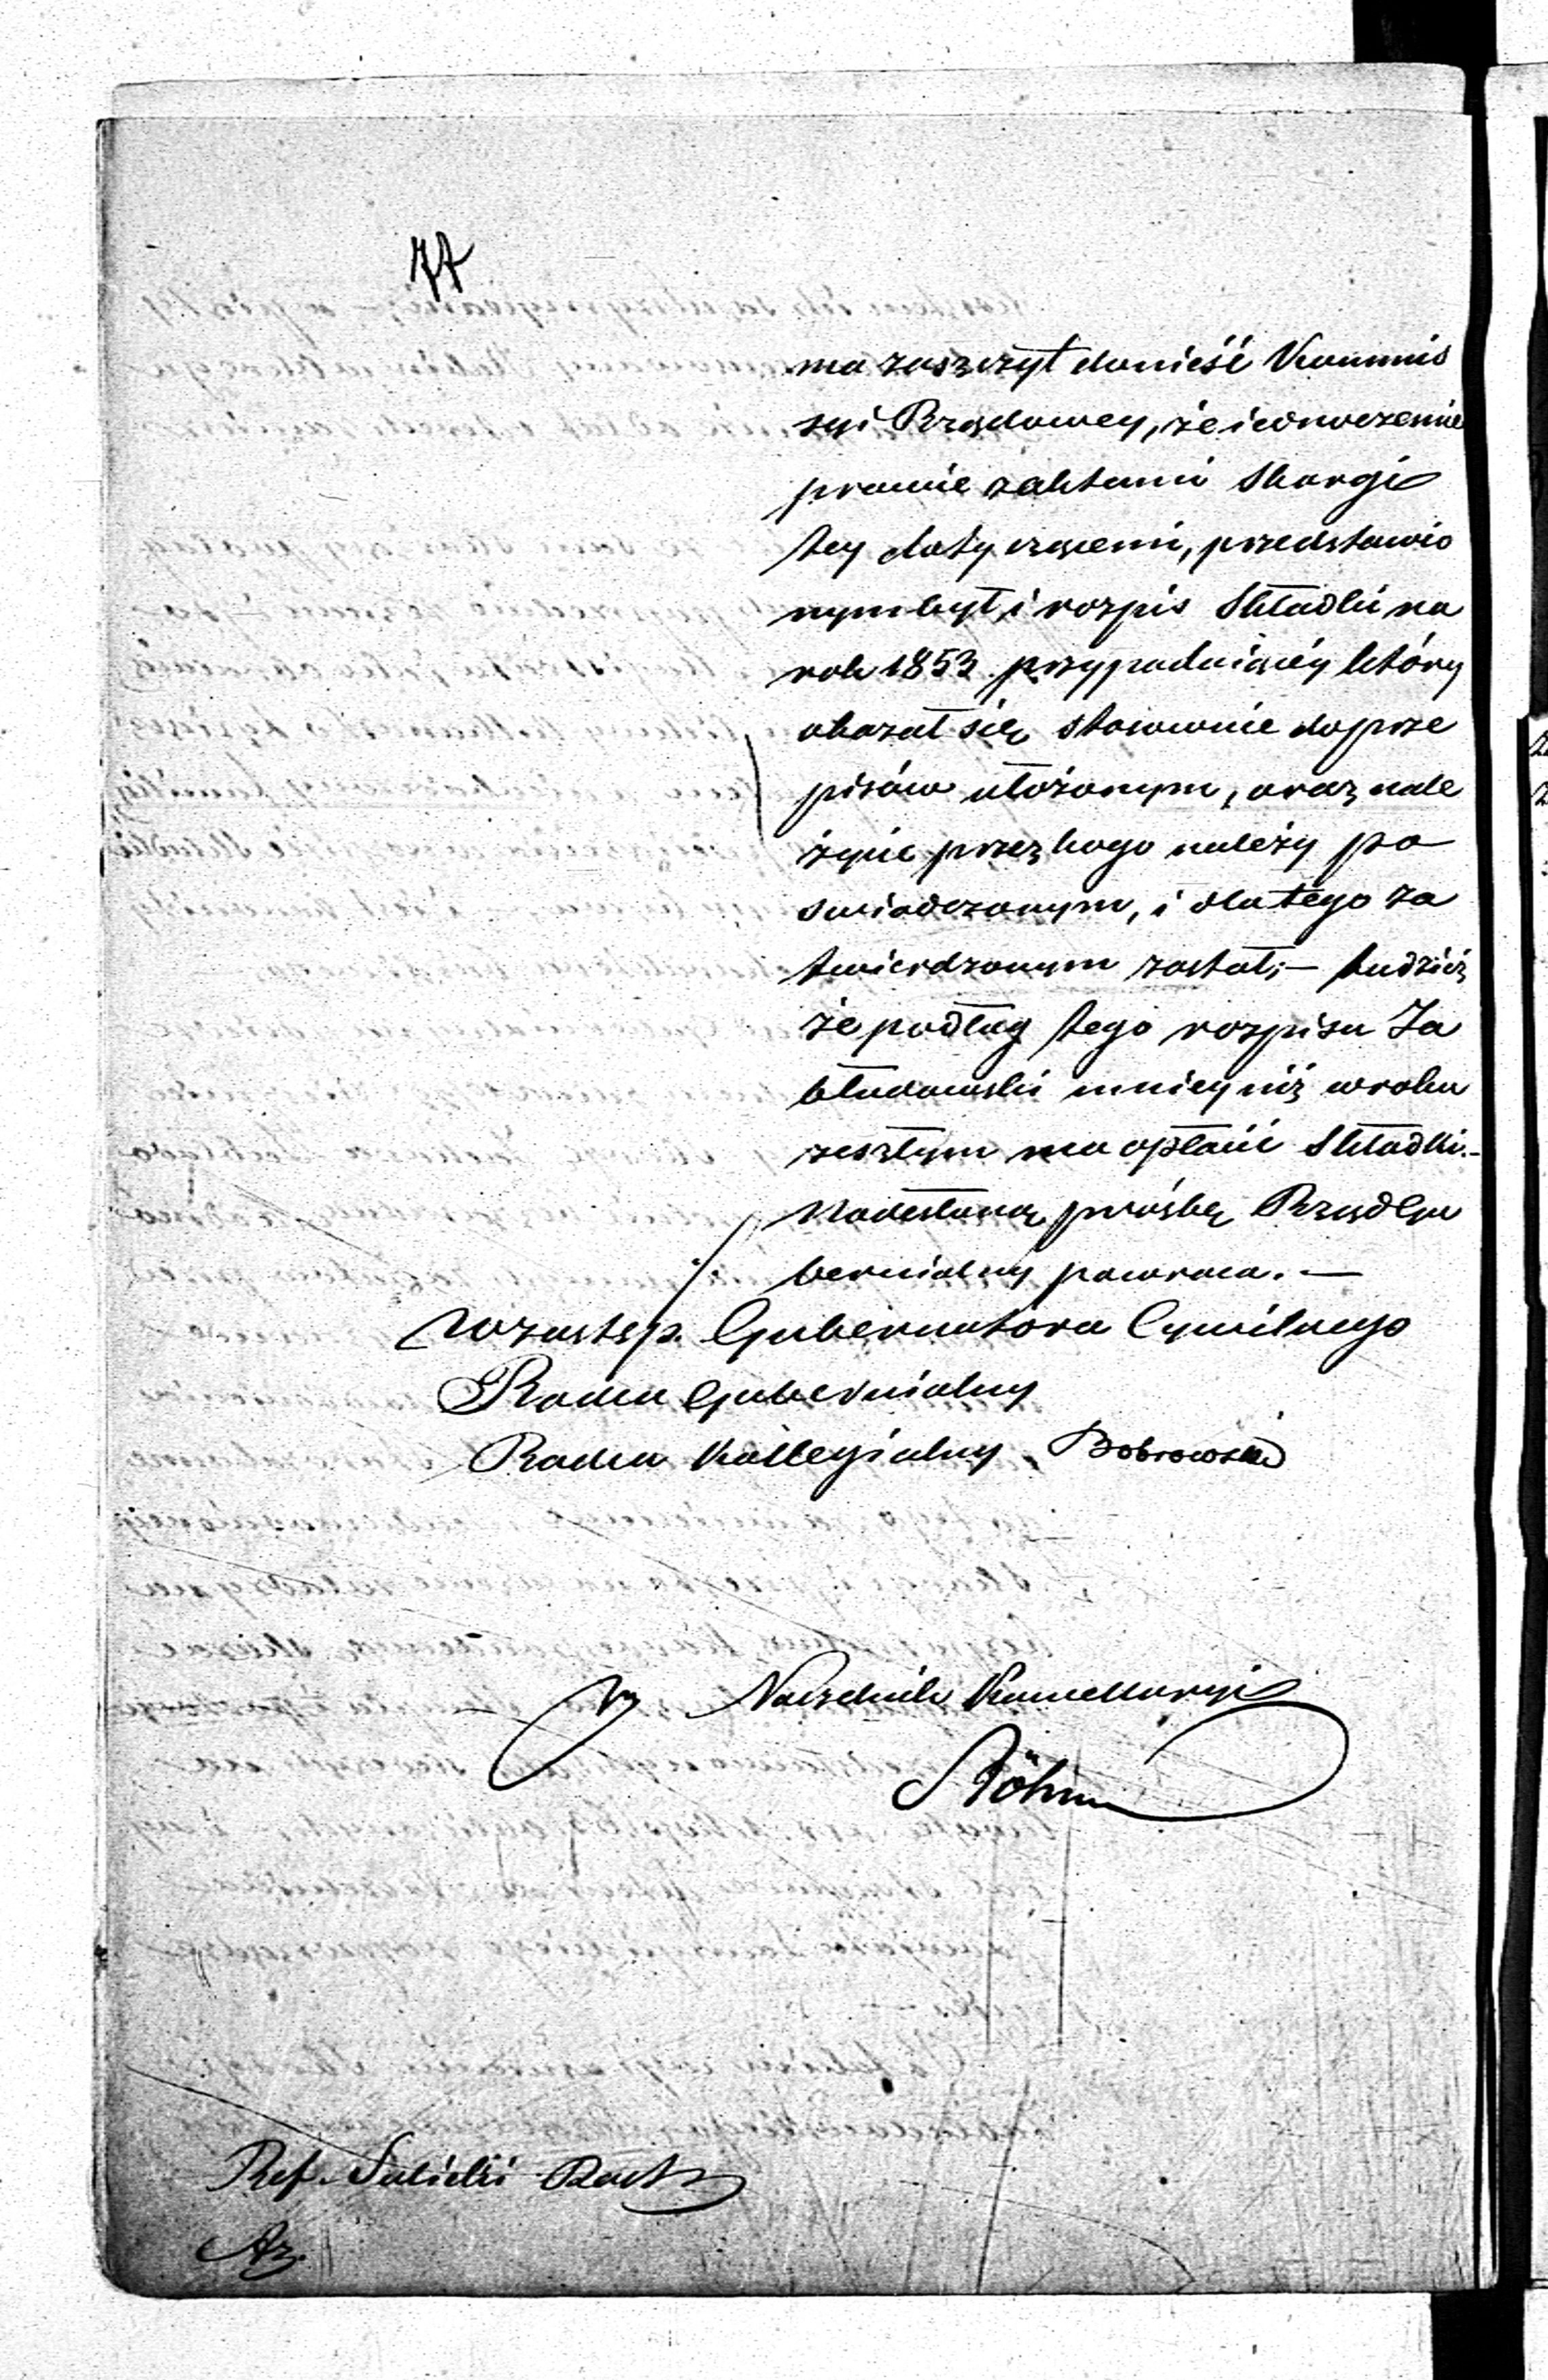 77
ma zaszczyt donieść Kommis
syi Rządowey, że iednocześnie
prawie z aktami Skargi
tey dotyczącemi, przedstawio
nym był, i rozpis Składki na
rok 1853 przypadaiącéy który
okazał się stosownie do prze
pisów ułożonym, oraz nale
życie przez kogo należy po
swiadczonym, i dla tego za
twierdzonym został; — tudzież
że podług tego rozpisu Za
błudowski mniey niż w roku
zeszłym ma opłacić Składki. —
Nadesłaną prośbę Rząd Gu
bernialny powraca. —
W zastęp. Gubernatora Cywilnego
Radca Gubernialny
Radca Kollegialny Bobrowski
Naczelnik Kancellaryi
Ref. Salicki